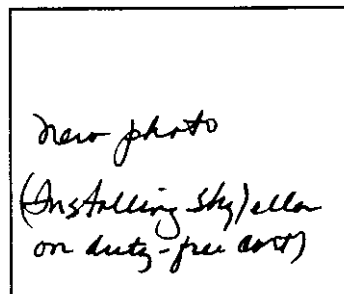 new photo
(Installing Sky/ellar
on duty-free cart)